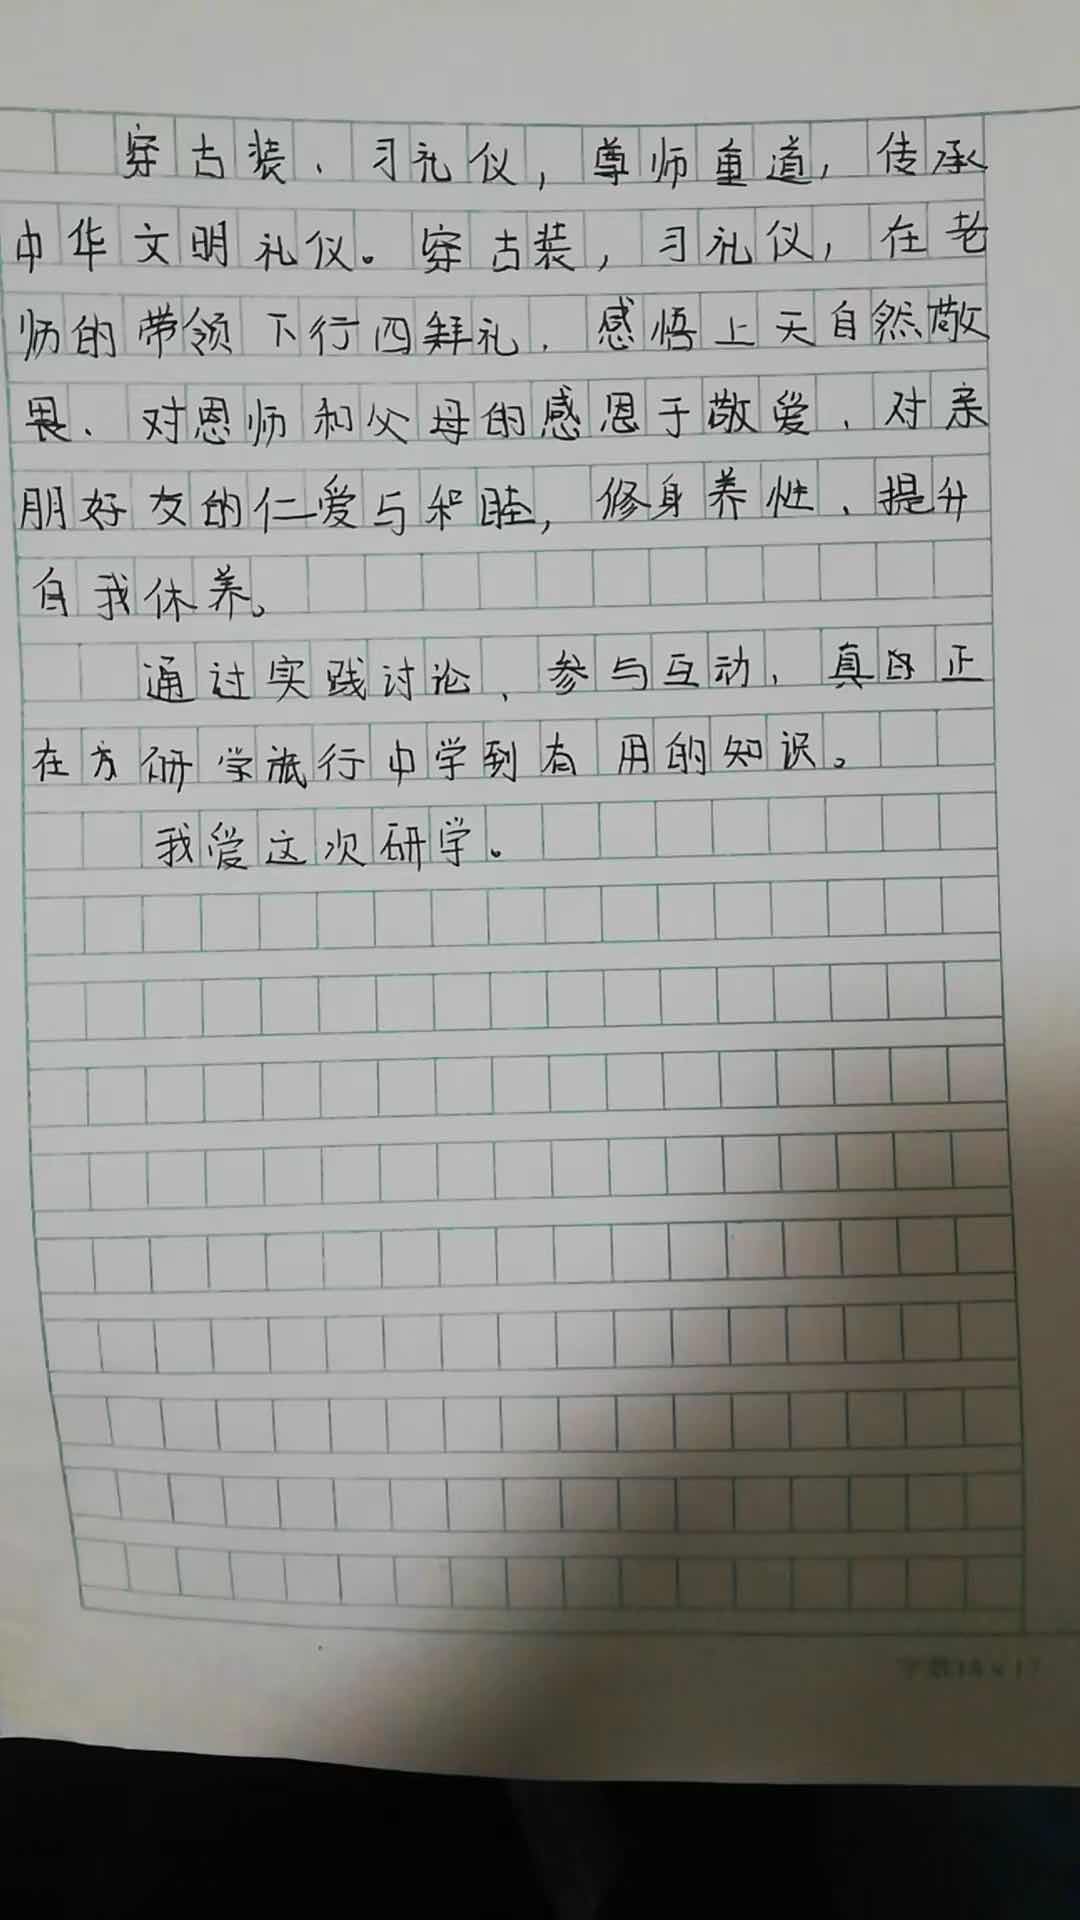 穿古装、习礼仪，尊师重道，传承
中华文明礼仪。穿古装，习礼仪，在老
师的带领下行四拜礼．感悟上天自然敬
畏、对恩师和父母的感恩于敬爱、对亲
朋好友的仁爱与和睦，修身养性、提升
自我休养。
通过实践讨论、参与互动，真正
在方研学旅行中学到有用的知识。
我爱这次研学。